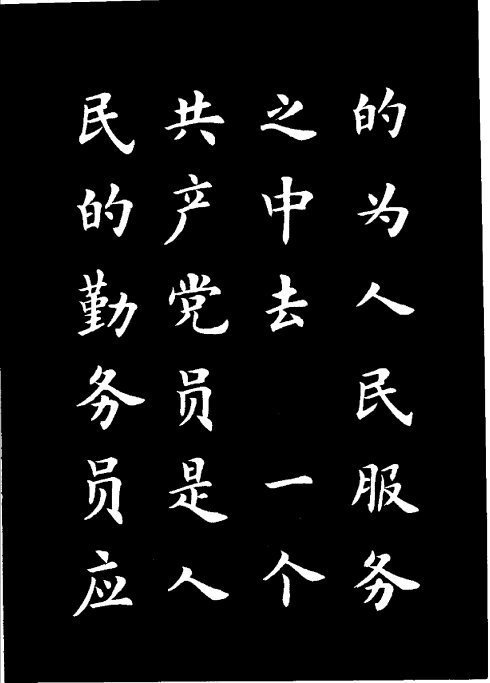 的为人民服务
之中去 一个
共产党员是人
民的勤务员应